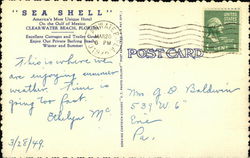 "SEA SHELL"
America's Most Unique Hotel
On the Gulf of Mexico
CLEARWATER BEACH, FLORIDA
Excellent Cottages and Trailer
Enjoy Our Private Bathing Beach
Winter and Summer
MAR 29
PM
POST CARD
This is where we
are enjoying summer
weather. Time is
going too fast.
Ethelyn Mc
3/28/49
Mrs G D Baldwin
539 W 6"
Erie
Pa.